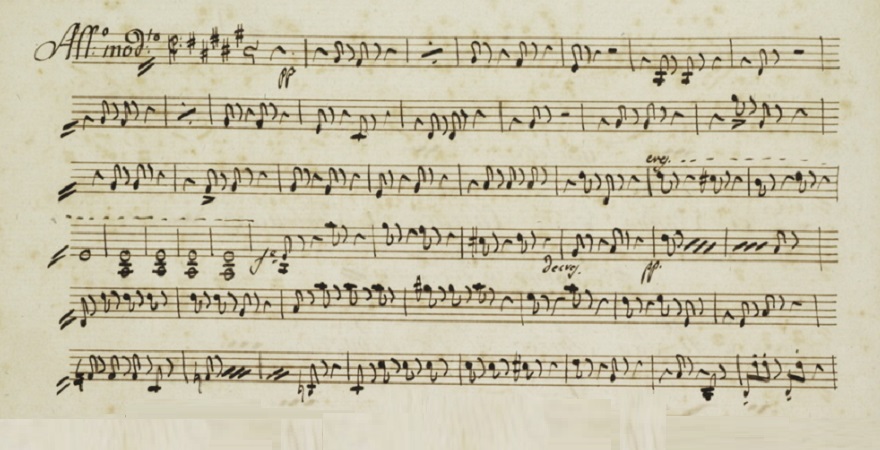 All.o mod.to
pp
cres.
fz
decres.
pp.